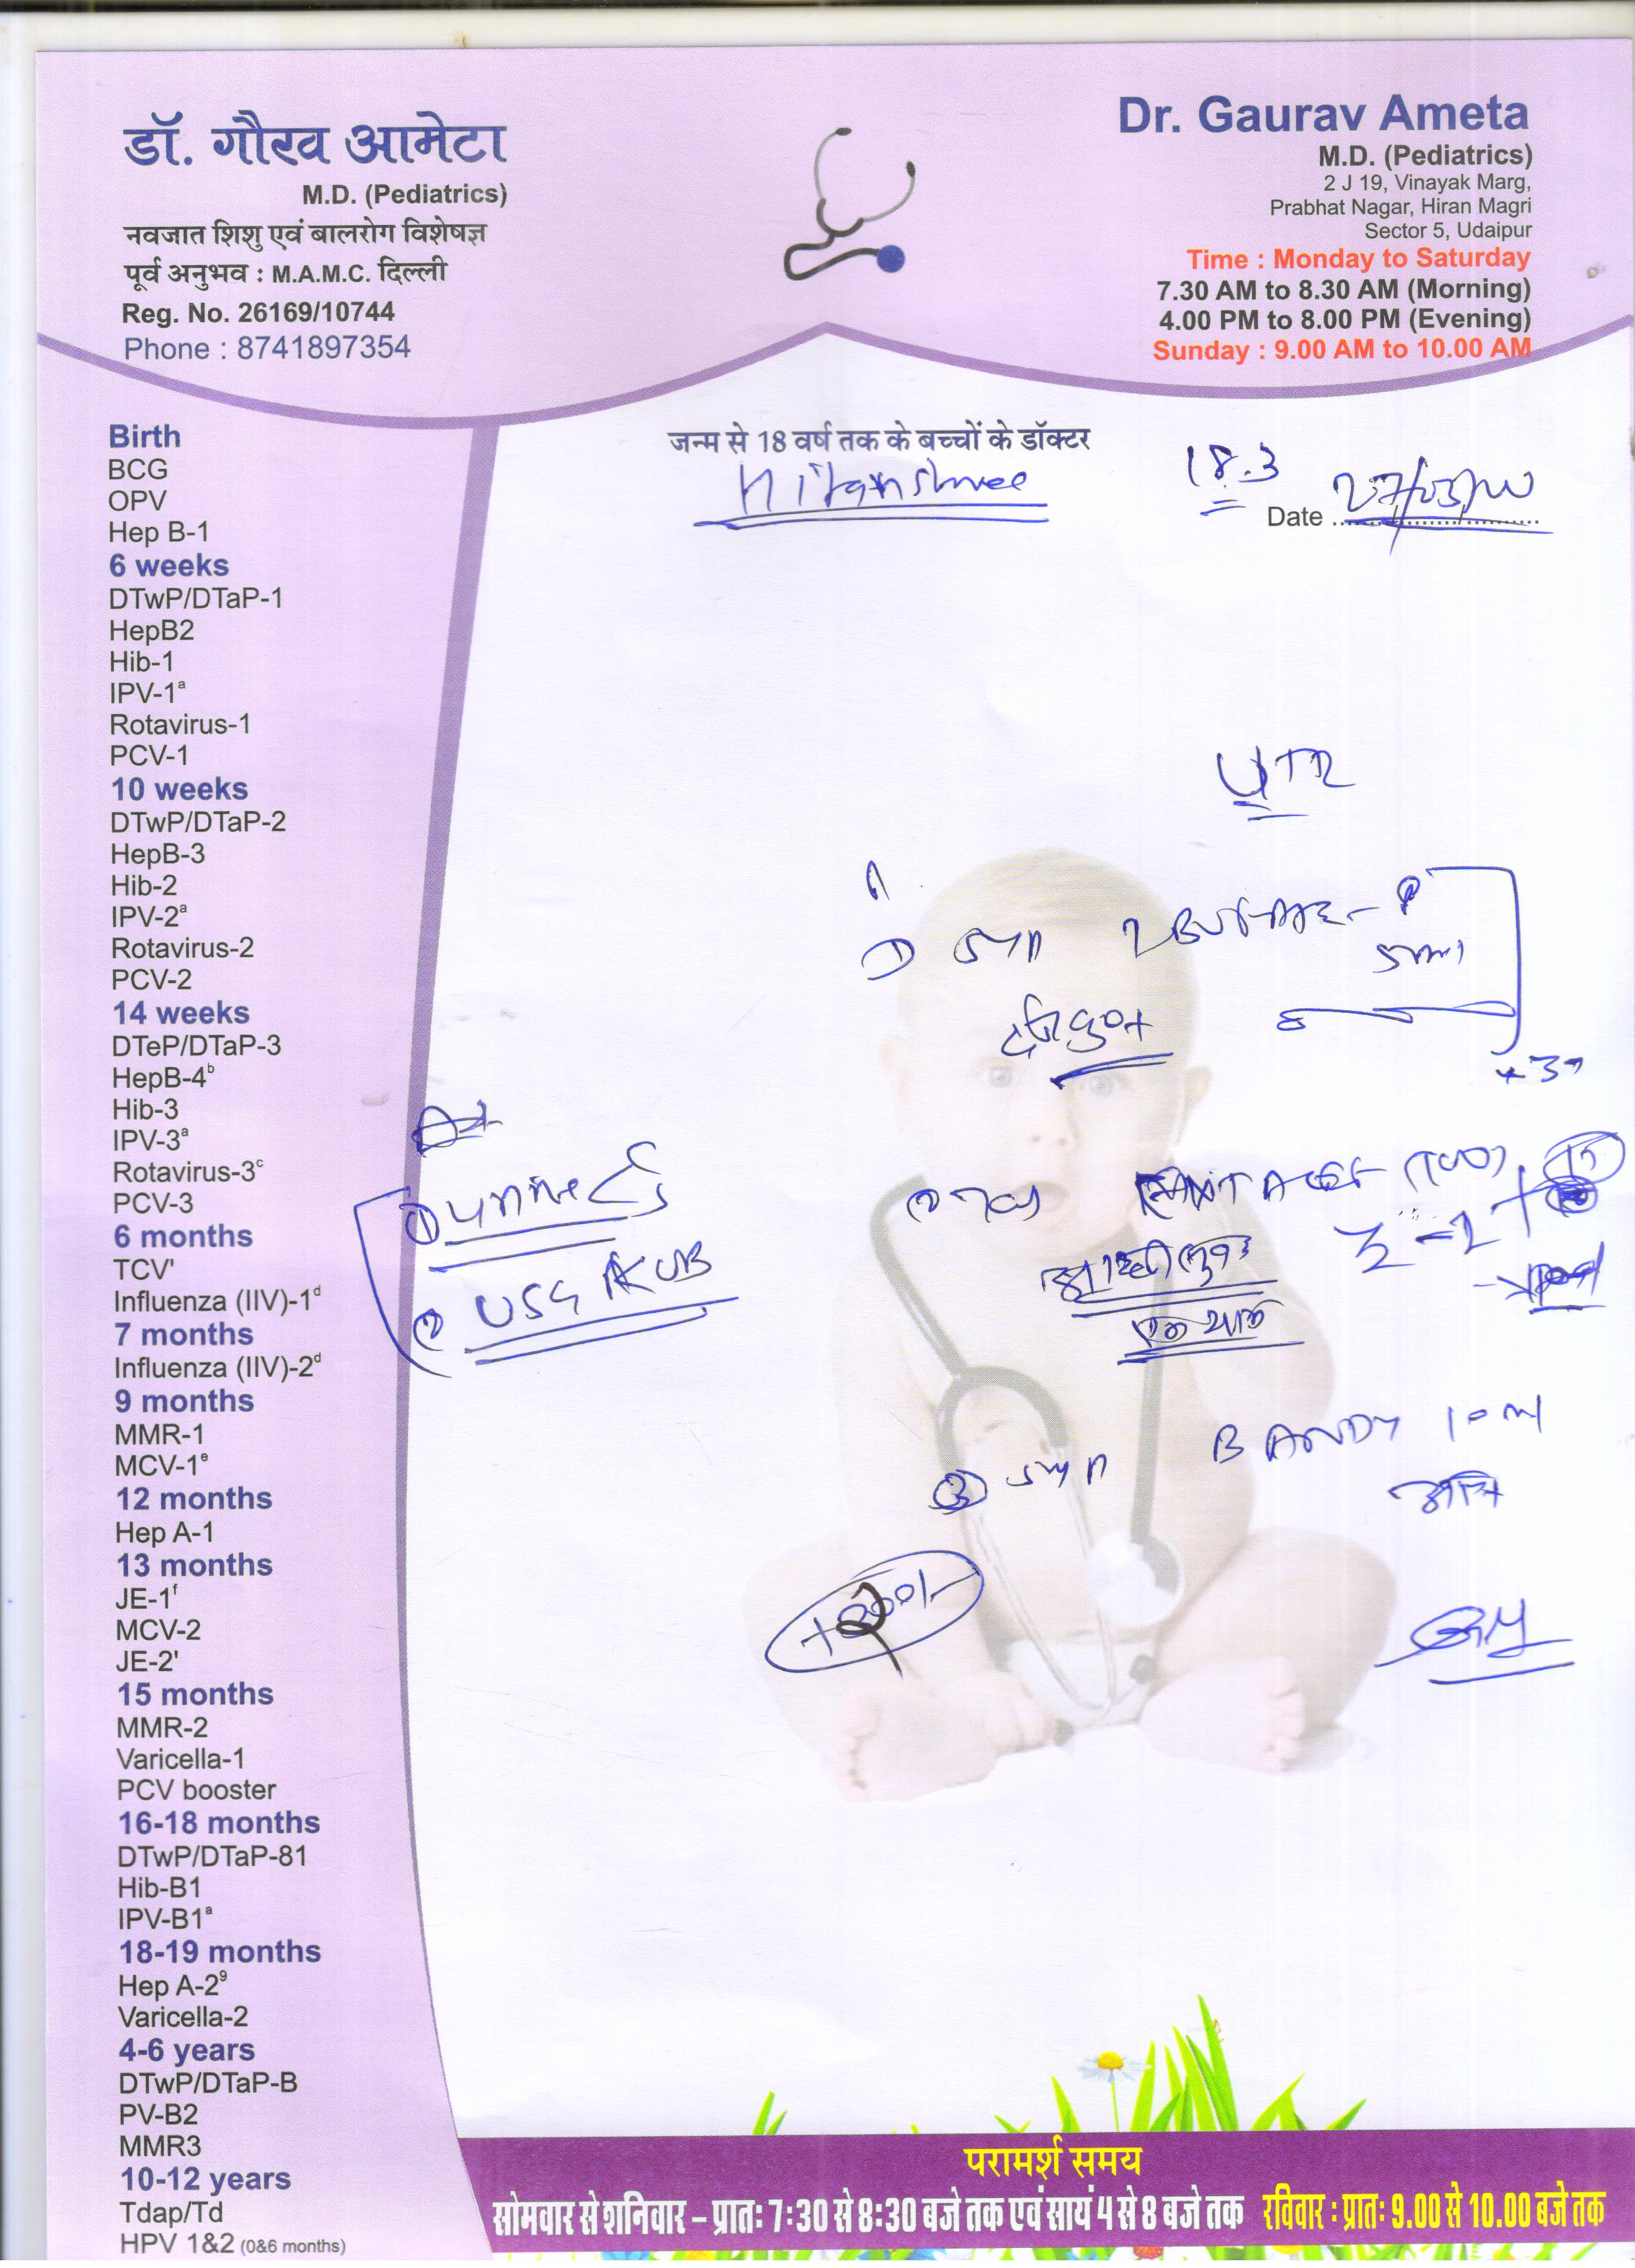 डॉ. गौरव आमेटा
M.D. (Pediatrics)
नवजात शिशु एवं बालरोग विशेषज्ञ
पूर्व अनुभव : M.A.M.C. दिल्ली
Reg. No. 26169/10744
Phone : 8741897354
Dr. Gaurav Ameta
M.D. (Pediatrics)
2 J 19, Vinayak Marg,
Prabhat Nagar, Hiran Magri
Sector 5, Udaipur
Time : Monday to Saturday
7.30 AM to 8.30 AM (Morning)
4.00 PM to 8.00 PM (Evening)
Sunday : 9.00 AM to 10.00 AM
जन्म से 18 वर्ष तक के बच्चों के डॉक्टर
18.3
Date
Birth
BCG
OPV
Hep B-1
6 weeks
DTwP/DTaP-1
HepB2
Hib-1
IPV-1ª
Rotavirus-1
PCV-1
10 weeks
DTwP/DTaP-2
HepB-3
Hib-2
IPV-2ª
Rotavirus-2
PCV-2
14 weeks
DTeP/DTaP-3
HepB-4ᵇ
Hib-3
IPV-3ª
Rotavirus-3ᶜ
PCV-3
6 months
TCV'
Influenza (IIV)-1ᵈ
7 months
Influenza (IIV)-2ᵈ
9 months
MMR-1
MCV-1ᵉ
12 months
Hep A-1
13 months
JE-1ᶠ
MCV-2
JE-2'
15 months
MMR-2
Varicella-1
PCV booster
16-18 months
DTwP/DTaP-81
Hib-B1
IPV-B1ª
18-19 months
Hep A-2⁹
Varicella-2
4-6 years
DTwP/DTaP-B
PV-B2
MMR3
10-12 years
Tdap/Td
HPV 1&2 (0&6 months)
① Syp
5ml
① urine
② USG KUB
③ Syp BANDY 10 ml
परामर्श समय
सोमवार से शनिवार – प्रातः 7:30 से 8:30 बजे तक एवं सायं 4 से 8 बजे तक रविवार : प्रातः 9.00 से 10.00 बजे तक